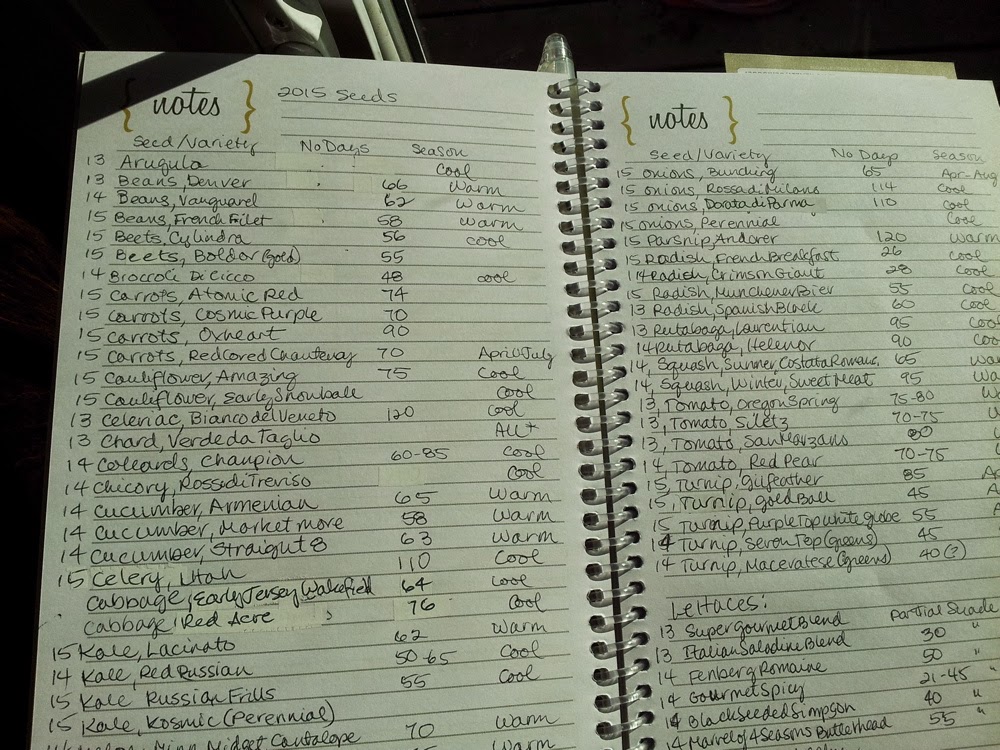 { notes } 2015 Seeds
Seed/Variety No Days Season
13 Arugula Cool
13 Beans, Denver 66 Warm
14 Beans, Vanguarel 62 Warm
15 Beans, French Filet 58 Warm
15 Beets, Cylindra 56 cool
15 Beets, Boldor (gold) 55
14 Broccoli DiCicco 48 cool
15 Carrots, Atomic Red 74
15 Carrots, Cosmic Purple 70
15 Carrots, Oxheart 90
15 Carrots, Red Cored Chantenay 70 April/July
15 Cauliflower, Amazing 75 Cool
15 Cauliflower, Early Snowball Cool
13 Celeriac, Bianco del Veneto 120 Cool
13 Chard, Verde da Taglio All+
14 Collards, Champion 60-85 Cool
14 Chicory, Rossa di Treviso Cool
14 Cucumber, Armenian 65 Warm
14 Cucumber, Market more 58 Warm
14 Cucumber, Straight 8 63 Warm
15 Celery, Utah 110 Cool
Cabbage, Early Jersey Wakefield 64 Cool
Cabbage, Red Acre 76 Cool
15 Kale, Lacinato 62 Warm
14 Kale, Red Russian 50-65 Cool
15 Kale Russian Frills 55 Cool
15 Kale, Kosmic (Perennial)
Minn Midget Cantalope 70 Warm
{ notes }
Seed/Variety No Days Season
15 onions, Bunching 65 Apr-Aug
15 onions, Rossa di Milano 114 Cool
15 onions, Dorata di Parma 110 cool
15 onions, Perennial Cool
15 Parsnip, Andover 120 Warm
15 Radish, French Breakfast 26 Cool
14 Radish, Crimson Giant 28 Cool
15 Radish, Munchener Bier 55 Cool
13 Radish, Spanish Black 60 Cool
13 Rutabaga, Laurentian 95 Cool
14 Rutabaga, Helenor 90 Coo
14, Squash, Summer, Costata Romans. 65 Wa
14, Squash, Winter, Sweet Meat 95 Wa
13, Tomato, Oregon Spring 75-80 W
13, Tomato, Siletz 70-75
13, Tomato, San Marzano 80
14, Tomato, Red Pear 70-75
15, Turnip, Gilfeather 85 A
15, Turnip, Gold Ball 45 A
15 Turnip, Purple Top White globe 55 A
14 Turnip, Seven Top (greens) 45
14 Turnip, Macevatese (greens) 40 (?)
Lettuces:
13 Super Gourmet Blend Partial Shade
13 Italian Saladine Blend 30 "
14 Fenberg Romaine 50 "
14 Gourmet Spicy 21-45 "
14 Black Seeded Simpson 40 "
14 Marvel of 4 Seasons Butterhead 55 "